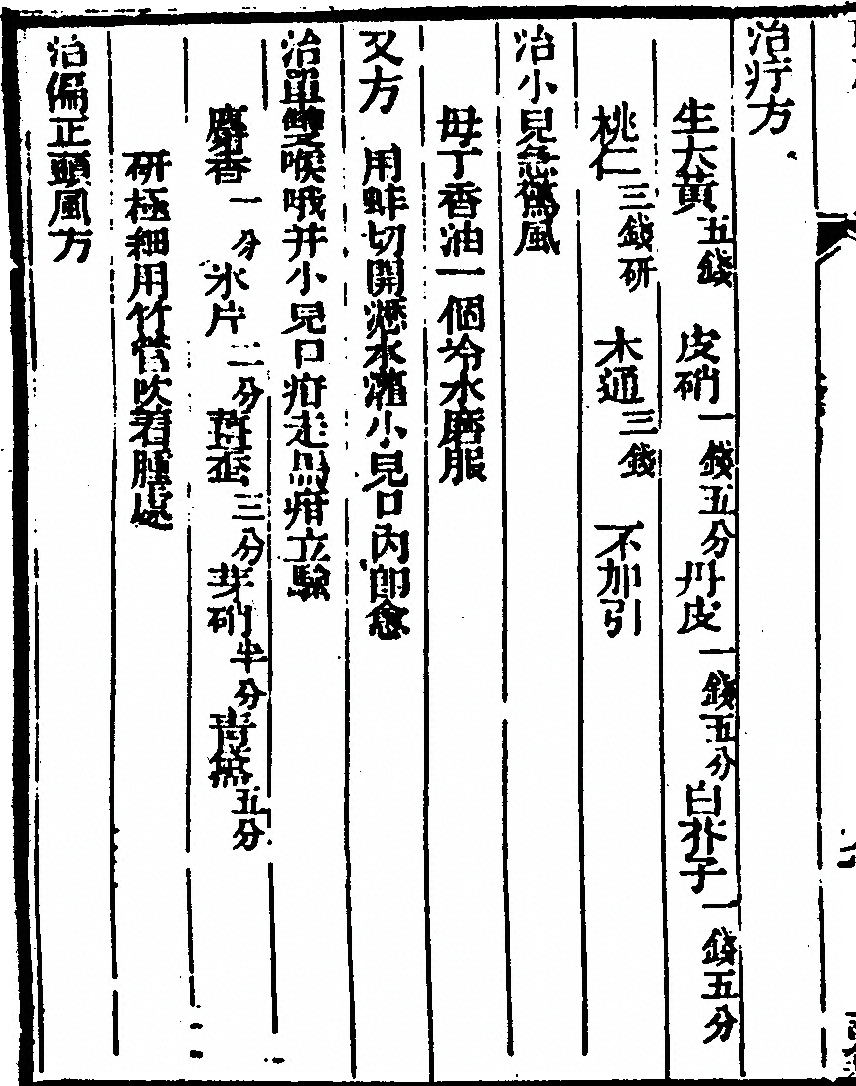 治疔方
生大黃五錢 皮硝一錢五分 丹皮一錢五分 白芥子一錢五分
桃仁三錢研 木通三錢 不加引
治小兒急驚風
母丁香油一個冷水磨服
又方 用蚌切開瀝水灌小兒口內卽愈
治單雙喉哦并小兒口疳走馬疳立驗
麝香一分 氷片二分 三分 芽硝半分 青黛五分
研極細用竹管吹着腫處
治偏正頭風方